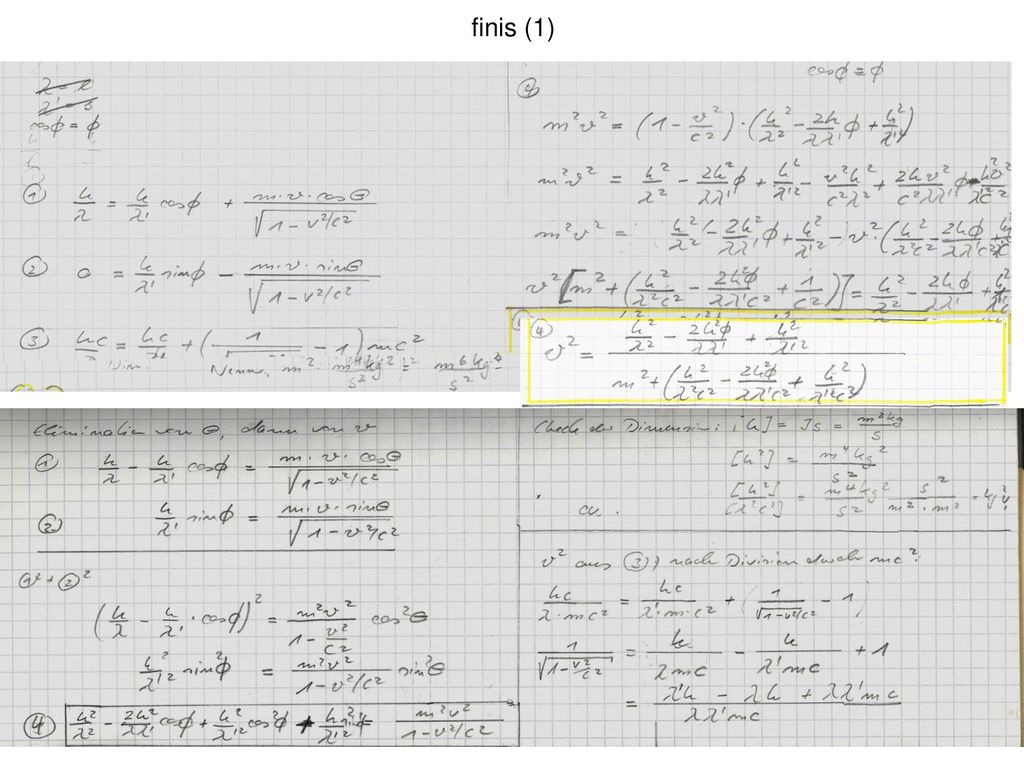 finis (1)
cosϕ = ϕ
① h/λ = h/λ' cosϕ + m·v·cosθ / √(1-v²/c²)
② 0 = h/λ' sinϕ - m·v·sinθ / √(1-v²/c²)
③ hc/λ = hc/λ' + (1/√ - 1) mc²
cosϕ ≡ ϕ
④
m²v² = (1 - v²/c²)·(h²/λ² - 2h/λλ' ϕ + h²/λ'²)
m²v² = h²/λ² - 2h²/λλ' ϕ + h²/λ'² - v²h²/c²λ² + 2hv²/c²λλ' ϕ - h²v²/λ'²c²
m²v² = h²/λ² - 2h²/λλ' ϕ + h²/λ'² - v²·(h²/λ²c² - 2hϕ/λλ'c² +
v²[m² + (h²/λ²c² - 2h²ϕ/λλ'c² + 1/c²)] = h²/λ² - 2hϕ/λλ' +
④ v² = (h²/λ² - 2h²ϕ/λλ' + h²/λ'²) / (m² + (h²/λ²c² - 2h²ϕ/λλ'c² + h²/λ'²c²))
Elimination von θ, dann von v
① h/λ - h/λ' cosϕ = m·v·cosθ / √(1-v²/c²)
② h/λ' sinϕ = m·v·sinθ / √(1-v²/c²)
①² + ②²
(h/λ - h/λ' · cosϕ)² = m²v² / (1 - v²/c²) cos²θ
h²/λ'² sin²ϕ = m²v² / (1-v²/c²) sin²θ
④ h²/λ² - 2h²/λλ' cosϕ + h²/λ'² cos²ϕ + h²/λ'² sin²ϕ = m²v² / (1-v²/c²)
Check der Dimension: [h] = Js = m²kg/s
[h²] = m⁴kg²/s²
[h²]/[λ²c²] = m⁴kg²/s² s²/m²·m² = kg²!
v² aus ③, nach Division durch mc²:
hc/λ·mc² = hc/λ'·m·c² + (1/√(1-v²/c²) - 1)
1/√(1-v²/c²) = h/λmc - h/λ'mc + 1
= (λ'h - λh + λλ'mc) / λλ'mc